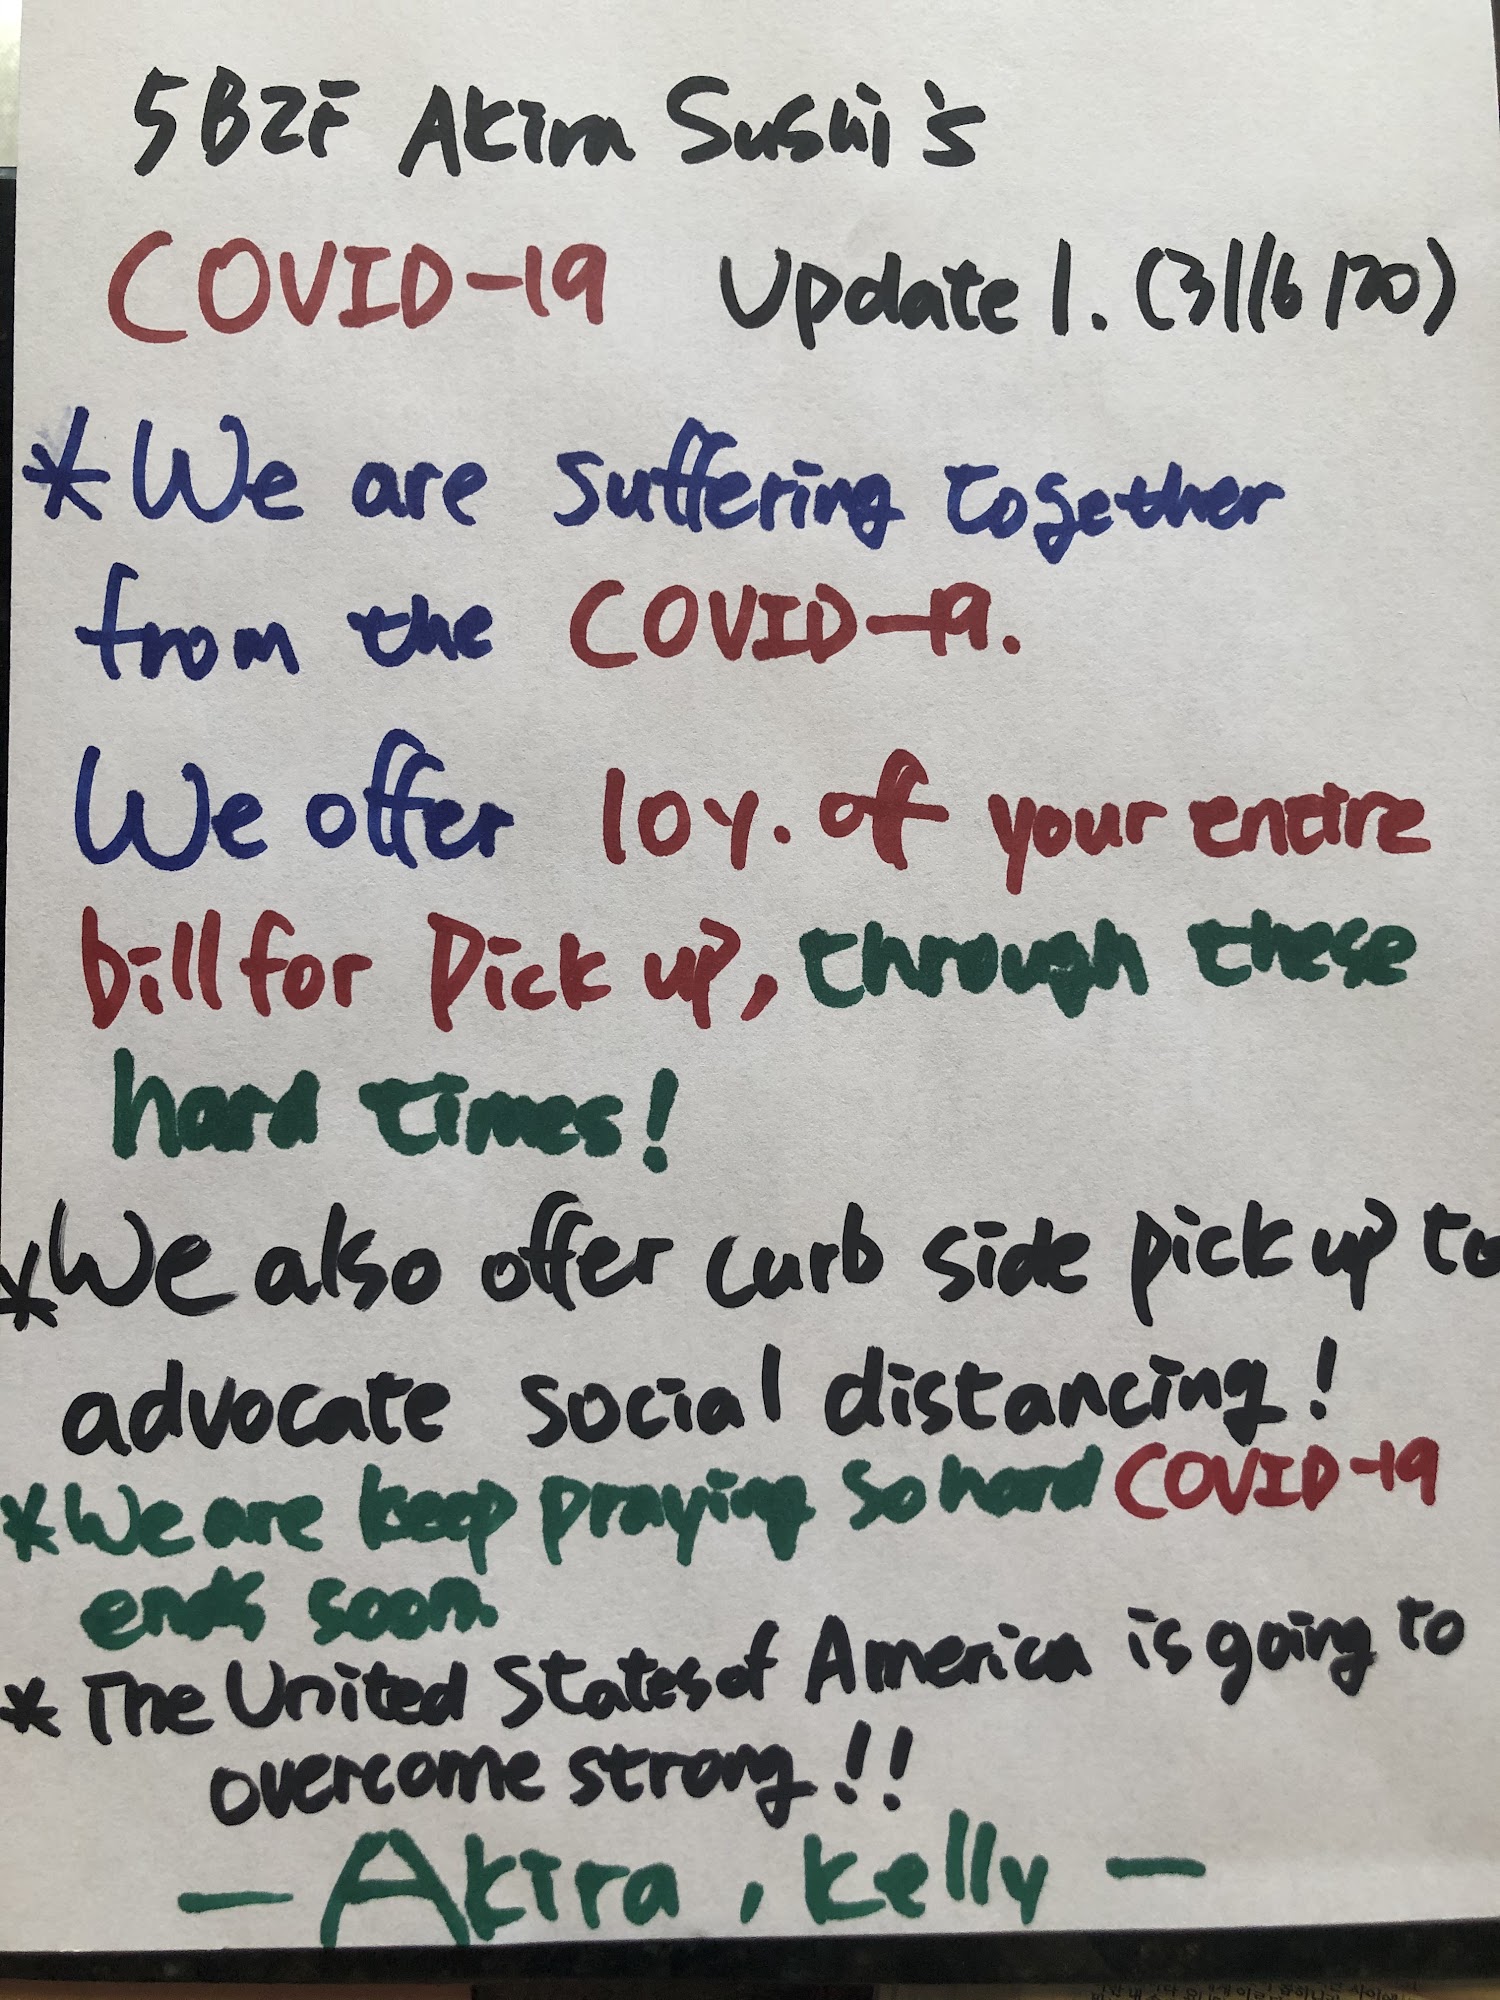 5B2F Akira Sushi's
COVID-19 Update 1. (3/16/20)
* We are suffering together
from the COVID-19.
We offer 10%. of your entire
bill for pick up, through these
hard times!
* We also offer curb side pick up to
advocate social distancing!
* We are keep praying so hard COVID-19
ends soon.
* The United States of America is going to
overcome strong!!
- Akira, Kelly -